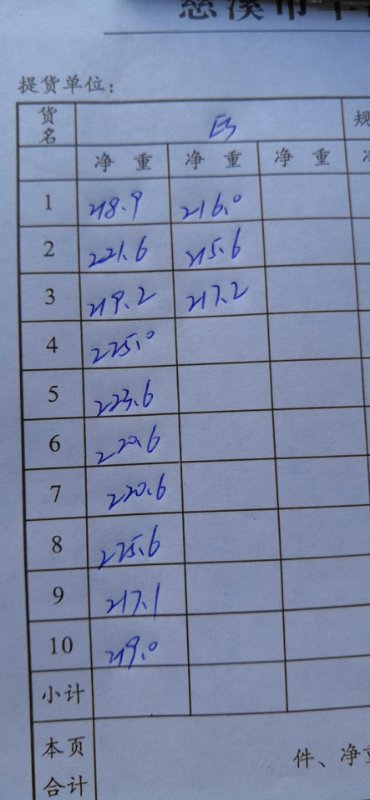 慈溪市
提货单位：
货名 E3 规
净 重 净 重 净 重 净
1 218.9 216.0
2 221.6 215.6
3 219.2 217.2
4 225.0
5 223.6
6 220.6
7 220.6
8 225.6
9 217.1
10 219.0
小计
本页合计 件、净重